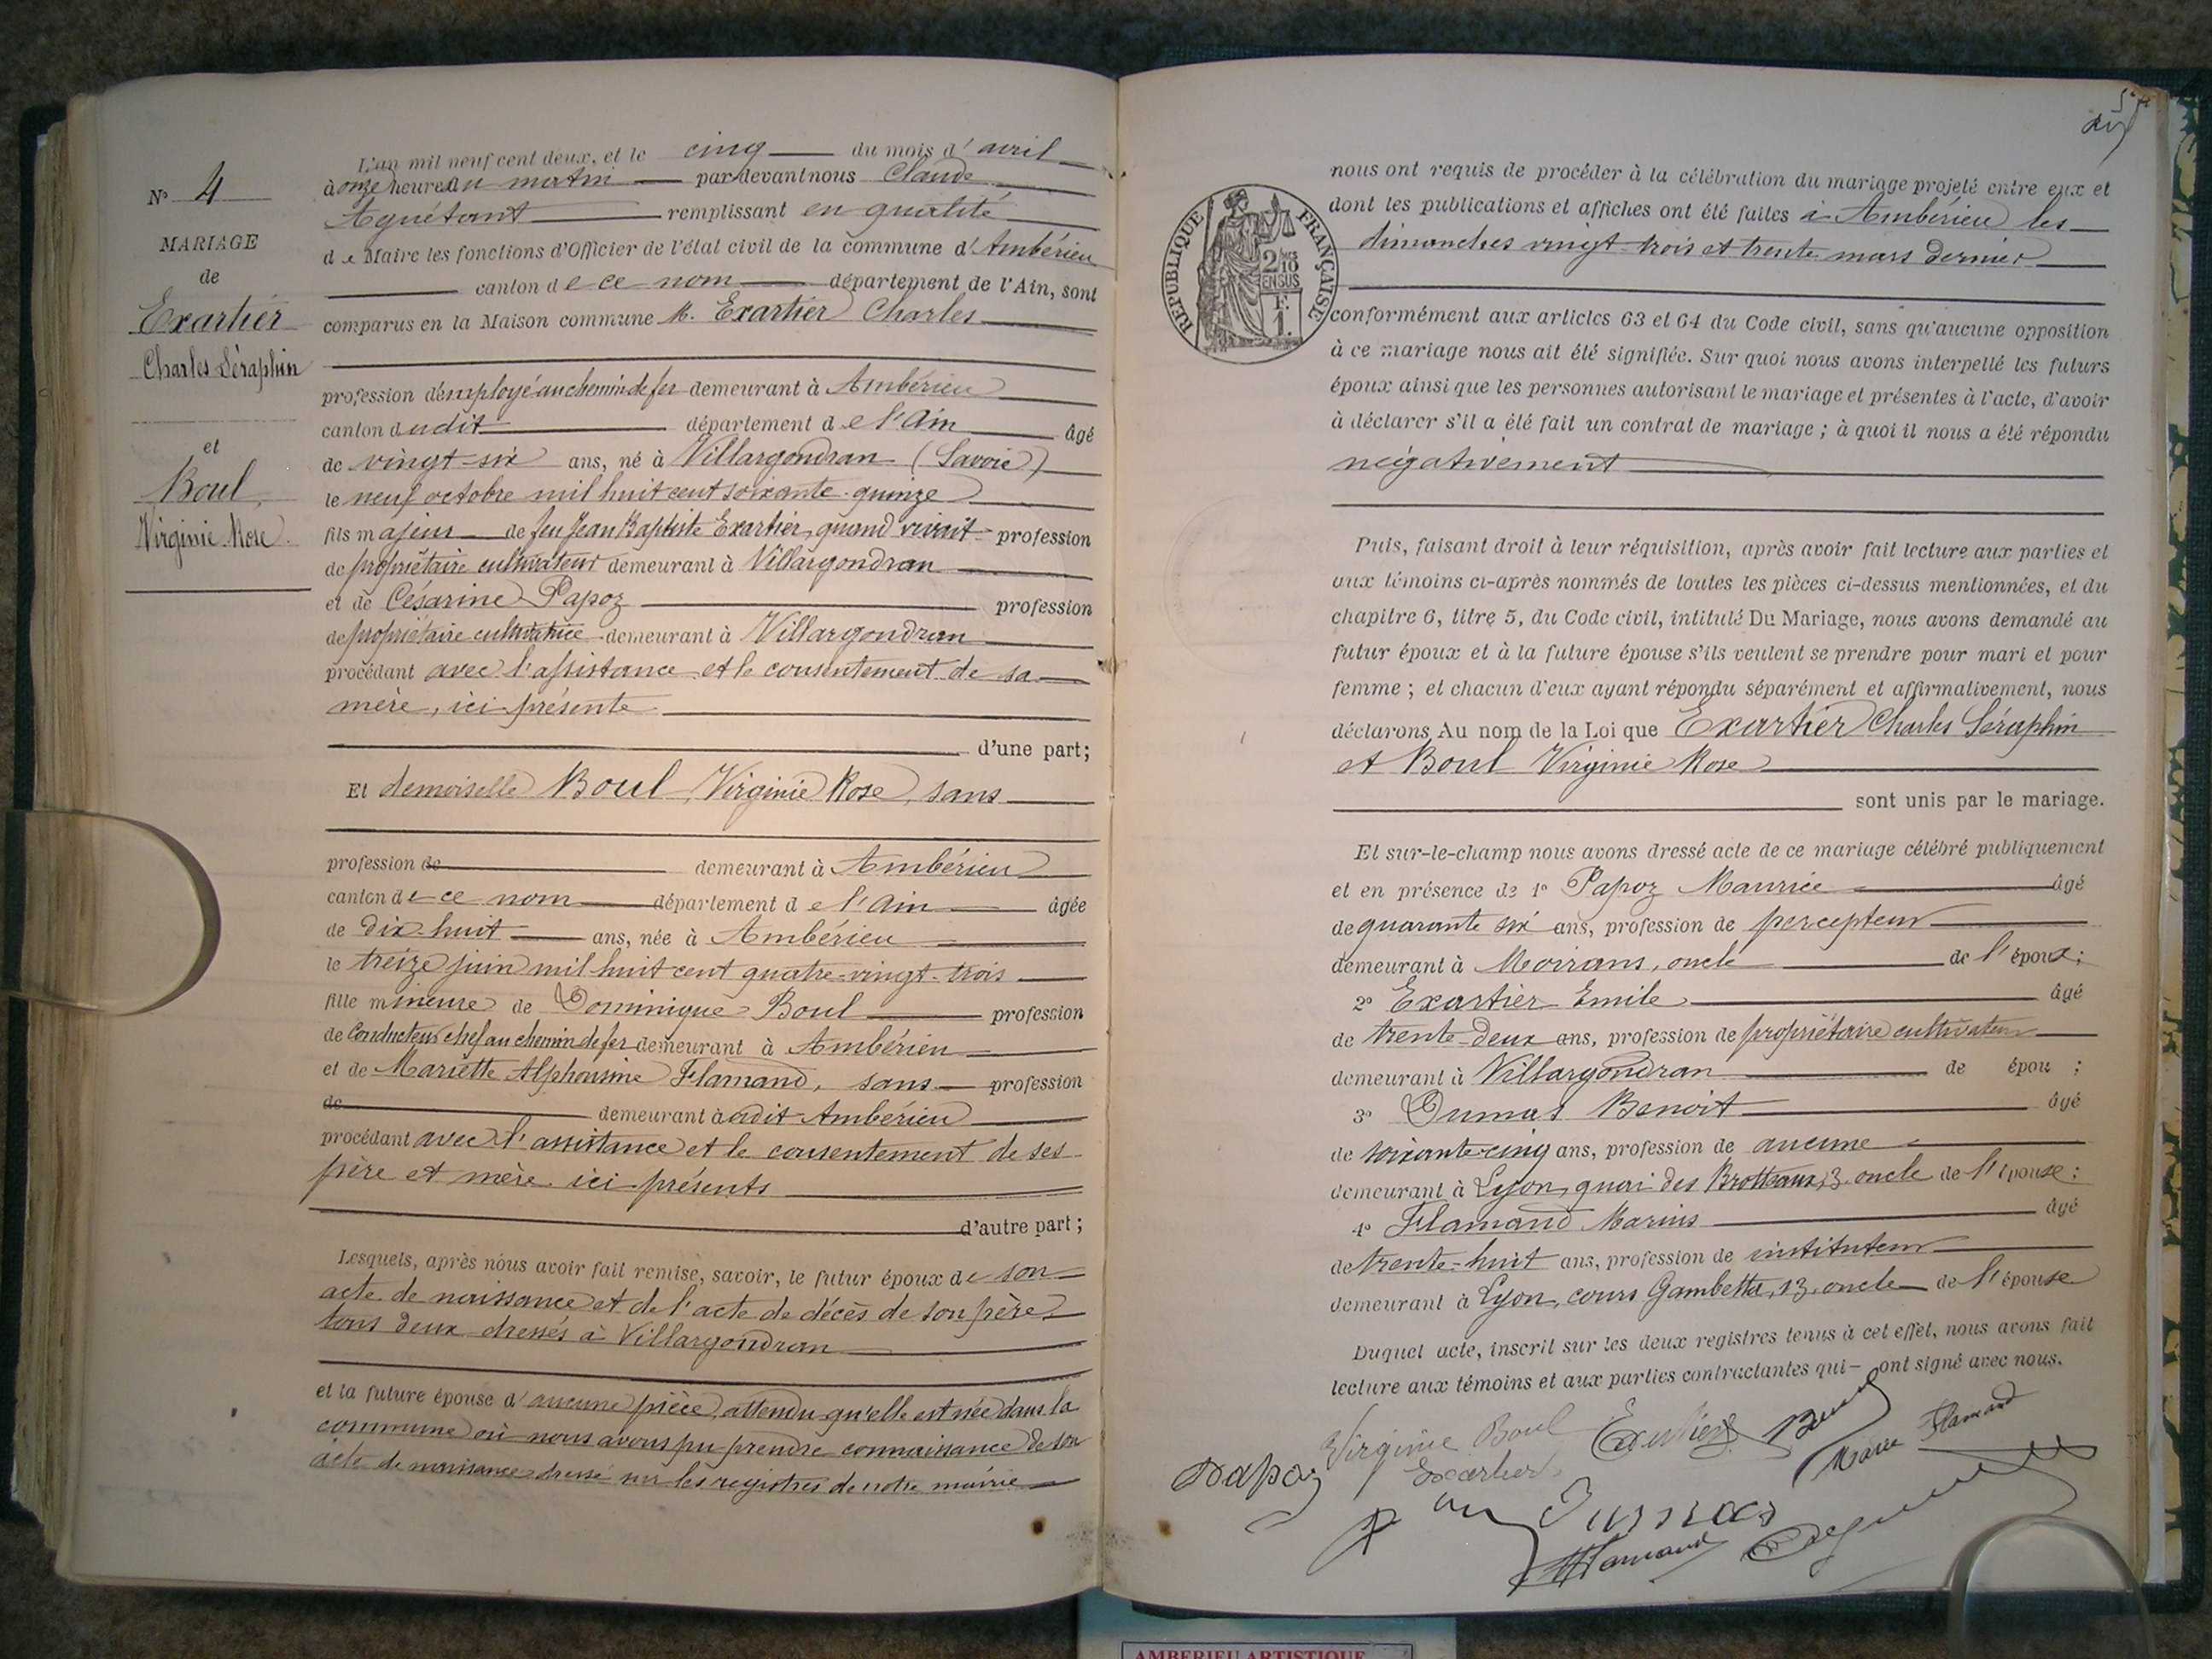 N° 4
MARIAGE
de
Exartier
Charles Séraphin
et
Boul
Virginie Rose.
L'an mil neuf cent deux, et le cinq du mois d'avril
à onze heure du matin par devant nous Claude
Aguétant remplissant en qualité
de Maire les fonctions d'Officier de l'état civil de la commune d'Ambérieu
canton de ce nom département de l'Ain, sont
comparus en la Maison commune M. Exartier Charles
profession d'employé au chemin de fer demeurant à Ambérieu
canton dudit département de l'Ain âgé
de vingt-six ans, né à Villargondran (Savoie)
le neuf octobre mil huit cent soixante-quinze
fils majeur de feu Jean Baptiste Exartier, quand vivait profession
de propriétaire cultivateur demeurant à Villargondran
et de Césarine Papoz profession
de propriétaire cultivatrice demeurant à Villargondran
procédant avec l'assistance et le consentement de sa
mère, ici présente
d'une part;
Et demoiselle Boul Virginie Rose, sans
profession de demeurant à Ambérieu
canton de ce nom département de l'Ain âgée
de dix-huit ans, née à Ambérieu
le treize juin mil huit cent quatre-vingt-trois
fille mineure de Dominique Boul profession
de Conducteur chef au chemin de fer demeurant à Ambérieu
et de Mariette Alphonsine Flamand, sans profession
de demeurant à audit Ambérieu
procédant avec l'assistance et le consentement de ses
père et mère ici présents
d'autre part;
Lesquels, après nous avoir fait remise, savoir, le futur époux de son
acte de naissance et de l'acte de décès de son père
tous deux dressés à Villargondran
et la future épouse d'aucune pièce, attendu qu'elle est née dans la
commune où nous avons pu prendre connaissance de son
acte de naissance dressé sur les registres de notre mairie
REPUBLIQUE FRANÇAISE
2/10
EN SUS
F.
1.
nous ont requis de procéder à la célébration du mariage projeté entre eux et
dont les publications et affiches ont été faites à Ambérieu les
dimanches vingt-trois et trente mars dernier
conformément aux articles 63 et 64 du Code civil, sans qu'aucune opposition
à ce mariage nous ait été signifiée. Sur quoi nous avons interpellé les futurs
époux ainsi que les personnes autorisant le mariage et présentes à l'acte, d'avoir
à déclarer s'il a été fait un contrat de mariage; à quoi il nous a été répondu
négativement
Puis, faisant droit à leur réquisition, après avoir fait lecture aux parties et
aux témoins ci-après nommés de toutes les pièces ci-dessus mentionnées, et du
chapitre 6, titre 5, du Code civil, intitulé Du Mariage, nous avons demandé au
futur époux et à la future épouse s'ils veulent se prendre pour mari et pour
femme; et chacun d'eux ayant répondu séparément et affirmativement, nous
déclarons Au nom de la Loi que Exartier Charles Séraphin
et Boul Virginie Rose
sont unis par le mariage.
Et sur-le-champ nous avons dressé acte de ce mariage célébré publiquement
et en présence de 1° Papoz Maurice âgé
de quarante six ans, profession de percepteur
demeurant à Moirans, oncle de l'époux;
2° Exartier Emile âgé
de trente-deux ans, profession de propriétaire cultivateur
demeurant à Villargondran de épou ;
3° Dumas Benoit âgé
de soixante-cinq ans, profession de aucune
demeurant à Lyon, quai des Brotteaux, 3. oncle de l'épouse;
4° Flamand Marius âgé
de trente-huit ans, profession de instituteur
demeurant à Lyon, cours Gambetta, 13. oncle de l'épouse
Duquel acte, inscrit sur les deux registres tenus à cet effet, nous avons fait
lecture aux témoins et aux parties contractantes qui ont signé avec nous.
Virginie Boul Exartier Boul
Marie Flamand
Papoz Exartier
Dumas
Flamand
AMBERIEU ARTISTIQUE